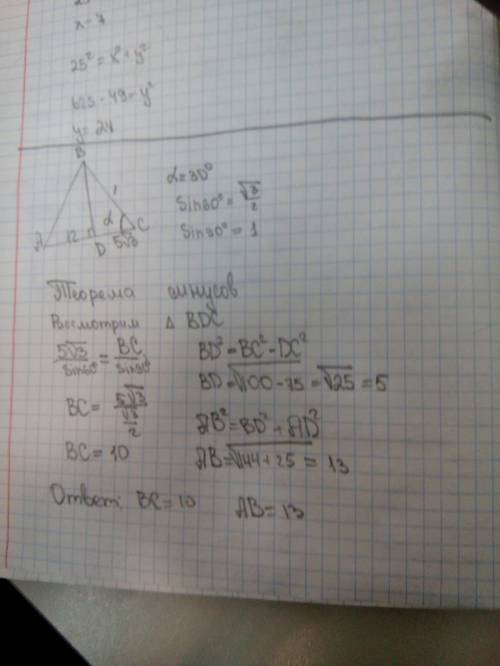 x=7
25² = x²+y²
625-49=y²
y=24
B
α=30°
Sin60°=√3/2
Sin90°=1
A 12 D 5√3 C α
Теорема синусов
Рассмотрим Δ BDC
5√3/Sin60° = BC/Sin90°
BD²=BC²-DC²
BD=√100-75=√25=5
BC= 5√3/(√3/2)
AB²=BD²+AD²
BC=10
AB=√144+25 = 13
Ответ: BC=10 AB=13